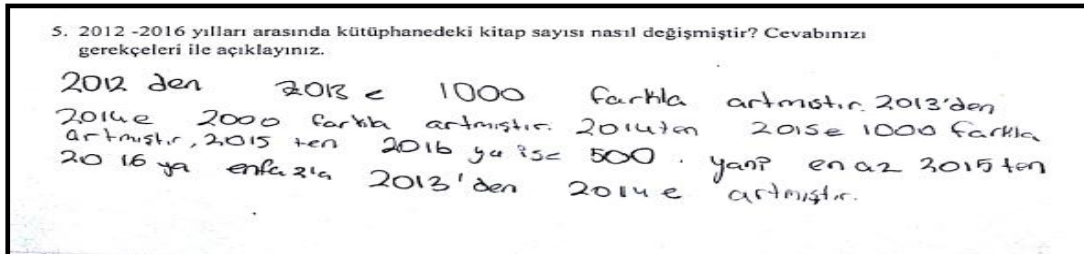 5. 2012 -2016 yılları arasında kütüphanedeki kitap sayısı nasıl değişmiştir? Cevabınızı
gerekçeleri ile açıklayınız.
2012 den 2013 e 1000 farkla artmıştır. 2013'den
2014 e 2000 farkla artmıştır. 2014 ten 2015 e 1000 farkla
artmıştır, 2015 ten 2016 ya ise 500. yani en az 2015 ten
2016 ya enfazla 2013'den 2014 e artmıştır.